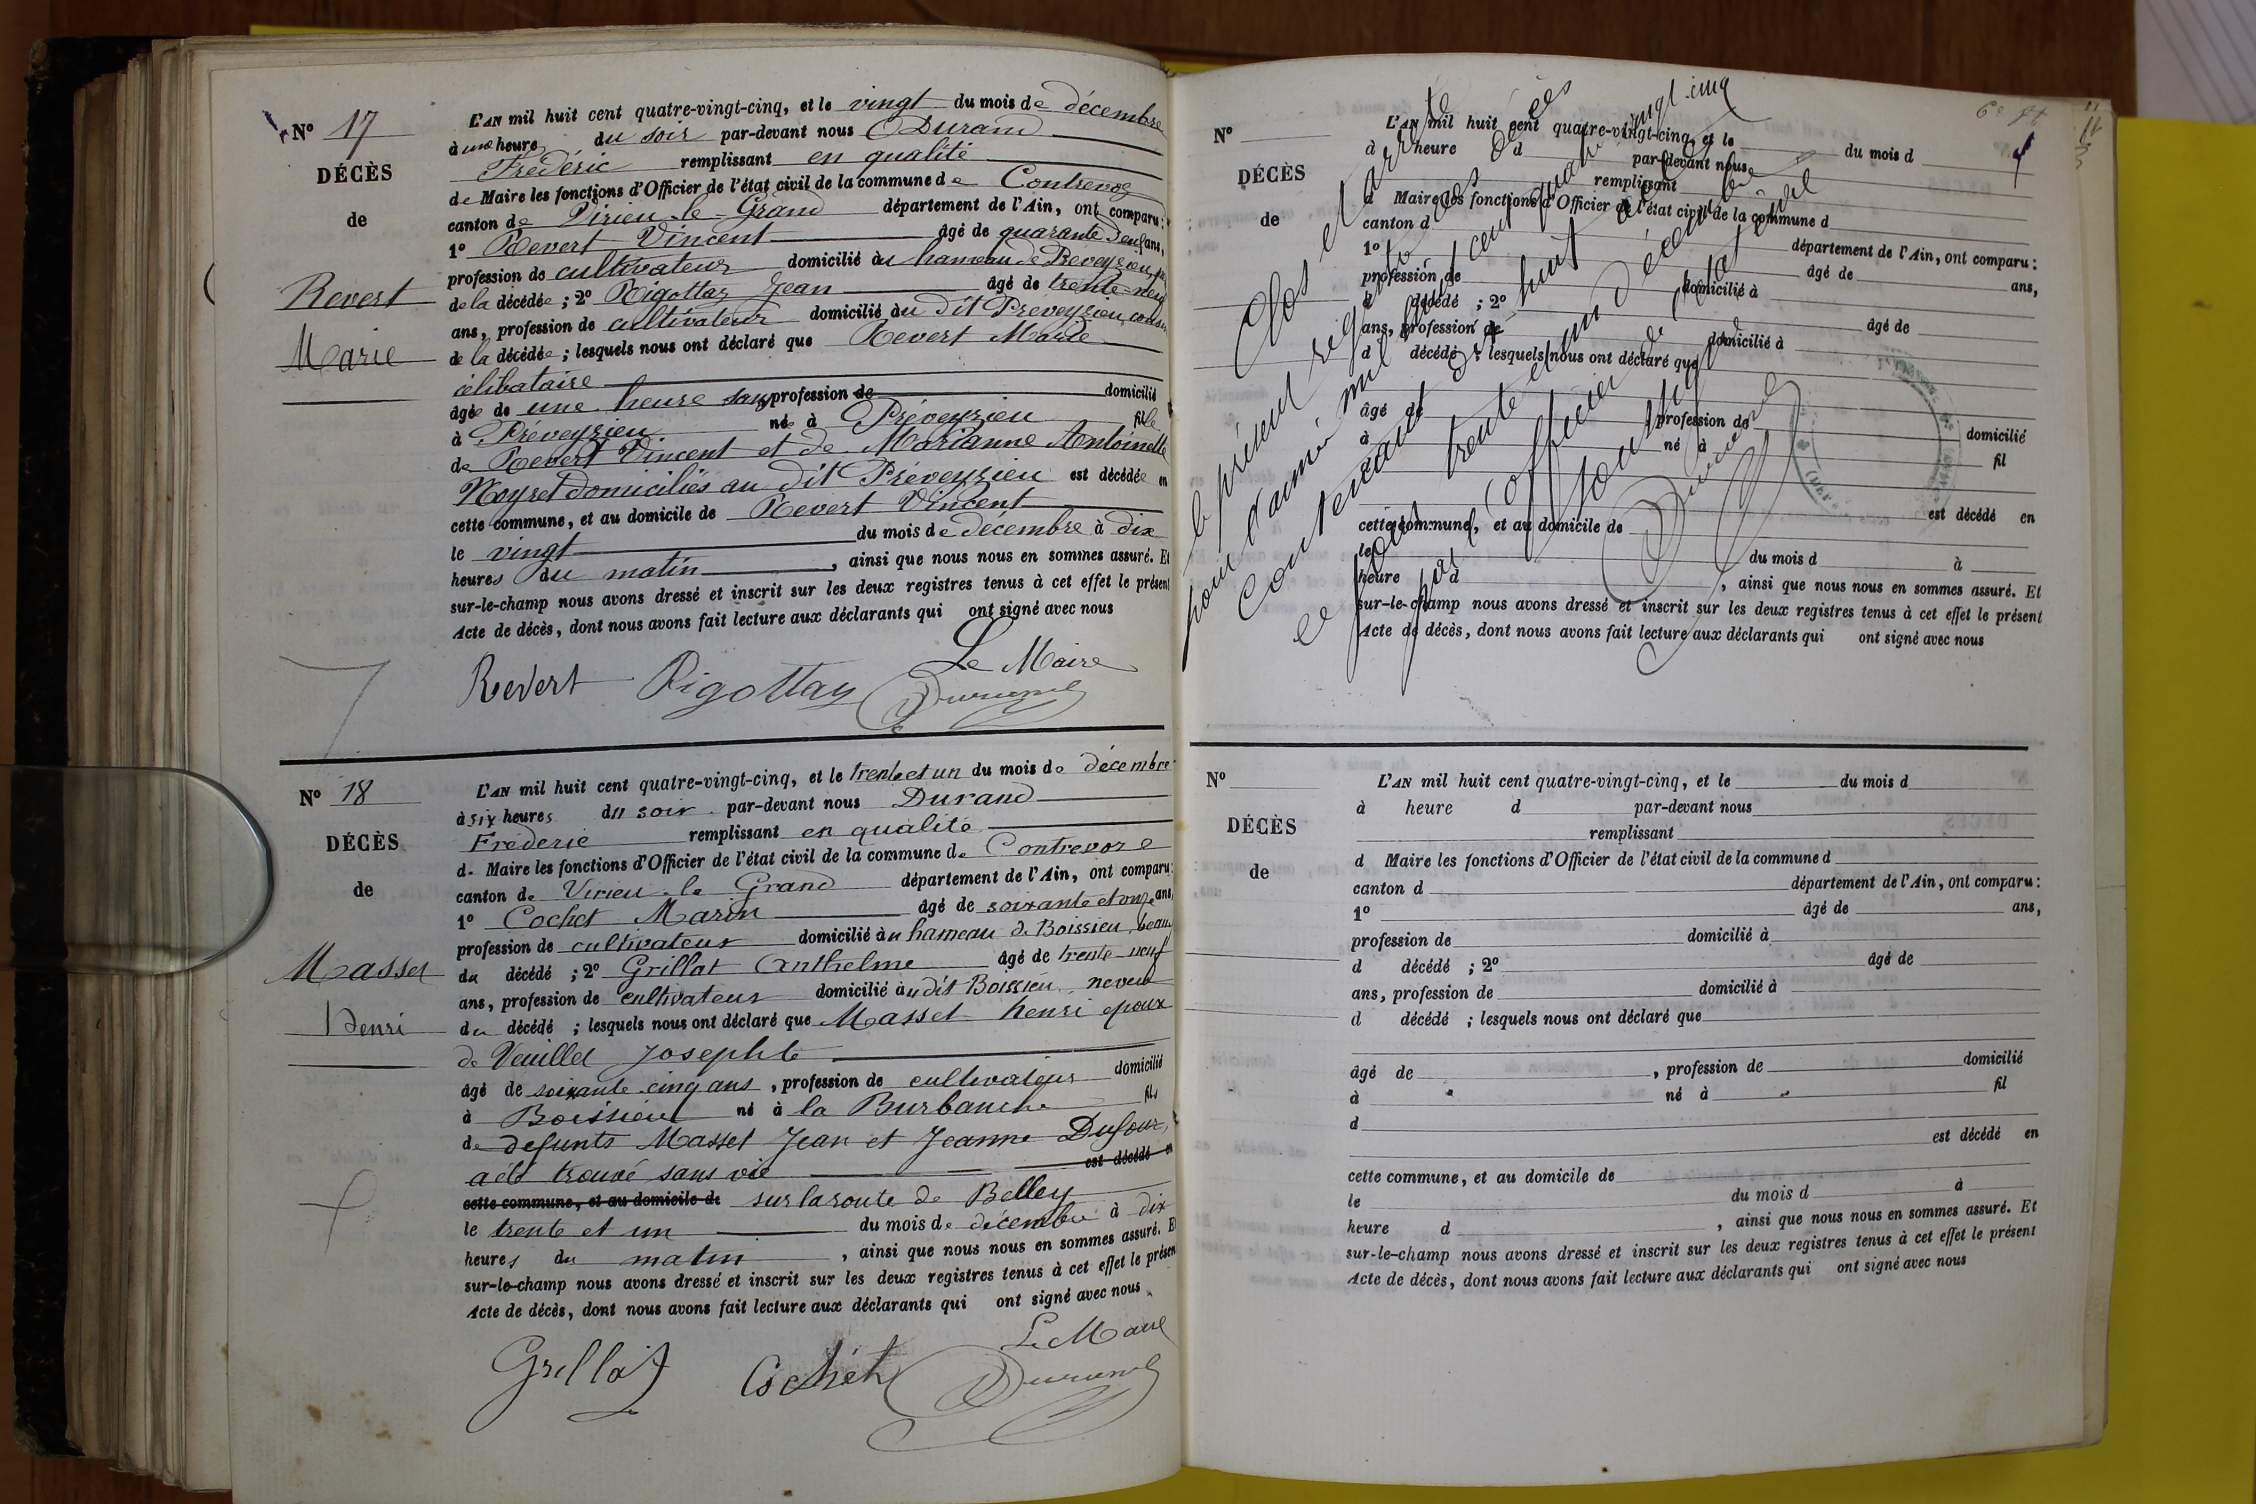 N° 17
DÉCÈS
de
Revert
Marie
L'AN mil huit cent quatre-vingt-cinq, et le vingt du mois de décembre
à une heure du soir par-devant nous Durand
Frédéric remplissant en qualité
de Maire les fonctions d'Officier de l'état civil de la commune de Contrevoz
canton de Virieu-le-Grand département de l'Ain, ont comparu :
1° Revert Vincent âgé de quarante deux ans,
profession de cultivateur domicilié au hameau de Préveyzieu,
de la décédée ; 2° Rigottaz Jean âgé de trente-neuf
ans, profession de cultivateur domicilié au dit Préveyzieu, cousin
de la décédée ; lesquels nous ont déclaré que Revert Marie
célibataire
âgée de une heure sans profession de domicilié
à Préveyzieu née à Préveyzieu fille
de Revert Vincent et de Marianne Antoinette
Noyret domiciliés au dit Préveyzieu est décédée en
cette commune, et au domicile de Revert Vincent
le vingt du mois de décembre à dix
heures du matin , ainsi que nous nous en sommes assuré. Et
sur-le-champ nous avons dressé et inscrit sur les deux registres tenus à cet effet le présent
Acte de décès, dont nous avons fait lecture aux déclarants qui ont signé avec nous
Le Maire
Revert Rigottaz Durand
N° 18
DÉCÈS
de
Masset
Henri
L'AN mil huit cent quatre-vingt-cinq, et le trente et un du mois de décembre
à six heures du soir par-devant nous Durand
Frédéric remplissant en qualité
de Maire les fonctions d'Officier de l'état civil de la commune de Contrevoz
canton de Virieu-le-Grand département de l'Ain, ont comparu :
1° Cochet Marin âgé de soixante et onze ans,
profession de cultivateur domicilié au hameau de Boissieu, beau
du décédé ; 2° Grillat Anthelme âgé de trente neuf
ans, profession de cultivateur domicilié au dit Boissieu neveu
du décédé ; lesquels nous ont déclaré que Masset henri époux
de Veuillet Josephte
âgé de soixante cinq ans , profession de cultivateur domicilié
à Boissieu né à la Burbanche fils
de défunts Masset Jean et Jeanne Dufour,
a été trouvé sans vie est décédé en
cette commune, et au domicile de sur la route de Belley
le trente et un du mois de décembre à dix
heures du matin , ainsi que nous nous en sommes assuré. Et
sur-le-champ nous avons dressé et inscrit sur les deux registres tenus à cet effet le présent
Acte de décès, dont nous avons fait lecture aux déclarants qui ont signé avec nous
Le Maire
Grillat Cochet Durand
N°
DÉCÈS
de
L'AN mil huit cent quatre-vingt-cinq, et le du mois d
à heure d par-devant nous
remplissant
d Maire les fonctions d'Officier de l'état civil de la commune d
canton d département de l'Ain, ont comparu :
1° âgé de ans,
profession de domicilié à
d décédé ; 2° âgé de
ans, profession de domicilié à
d décédé ; lesquels nous ont déclaré que
âgé de profession de domicilié
à né à fil
est décédé en
cette commune, et au domicile de
le du mois d à
heure d , ainsi que nous nous en sommes assuré. Et
sur-le-champ nous avons dressé et inscrit sur les deux registres tenus à cet effet le présent
Acte de décès, dont nous avons fait lecture aux déclarants qui ont signé avec nous
Clos et arrêté
le présent registre des décès
pour l'année mil huit cent quatre vingt cinq
contenant dix huit actes
ce jour trente et un décembre
par l'officier de l'état civil
soussigné
Durand
N°
DÉCÈS
de
L'AN mil huit cent quatre-vingt-cinq, et le du mois d
à heure d par-devant nous
remplissant
d Maire les fonctions d'Officier de l'état civil de la commune d
canton d département de l'Ain, ont comparu :
1° âgé de ans,
profession de domicilié à
d décédé ; 2° âgé de
ans, profession de domicilié à
d décédé ; lesquels nous ont déclaré que
âgé de , profession de domicilié
à né à fil
d
est décédé en
cette commune, et au domicile de
le du mois d à
heure d , ainsi que nous nous en sommes assuré. Et
sur-le-champ nous avons dressé et inscrit sur les deux registres tenus à cet effet le présent
Acte de décès, dont nous avons fait lecture aux déclarants qui ont signé avec nous